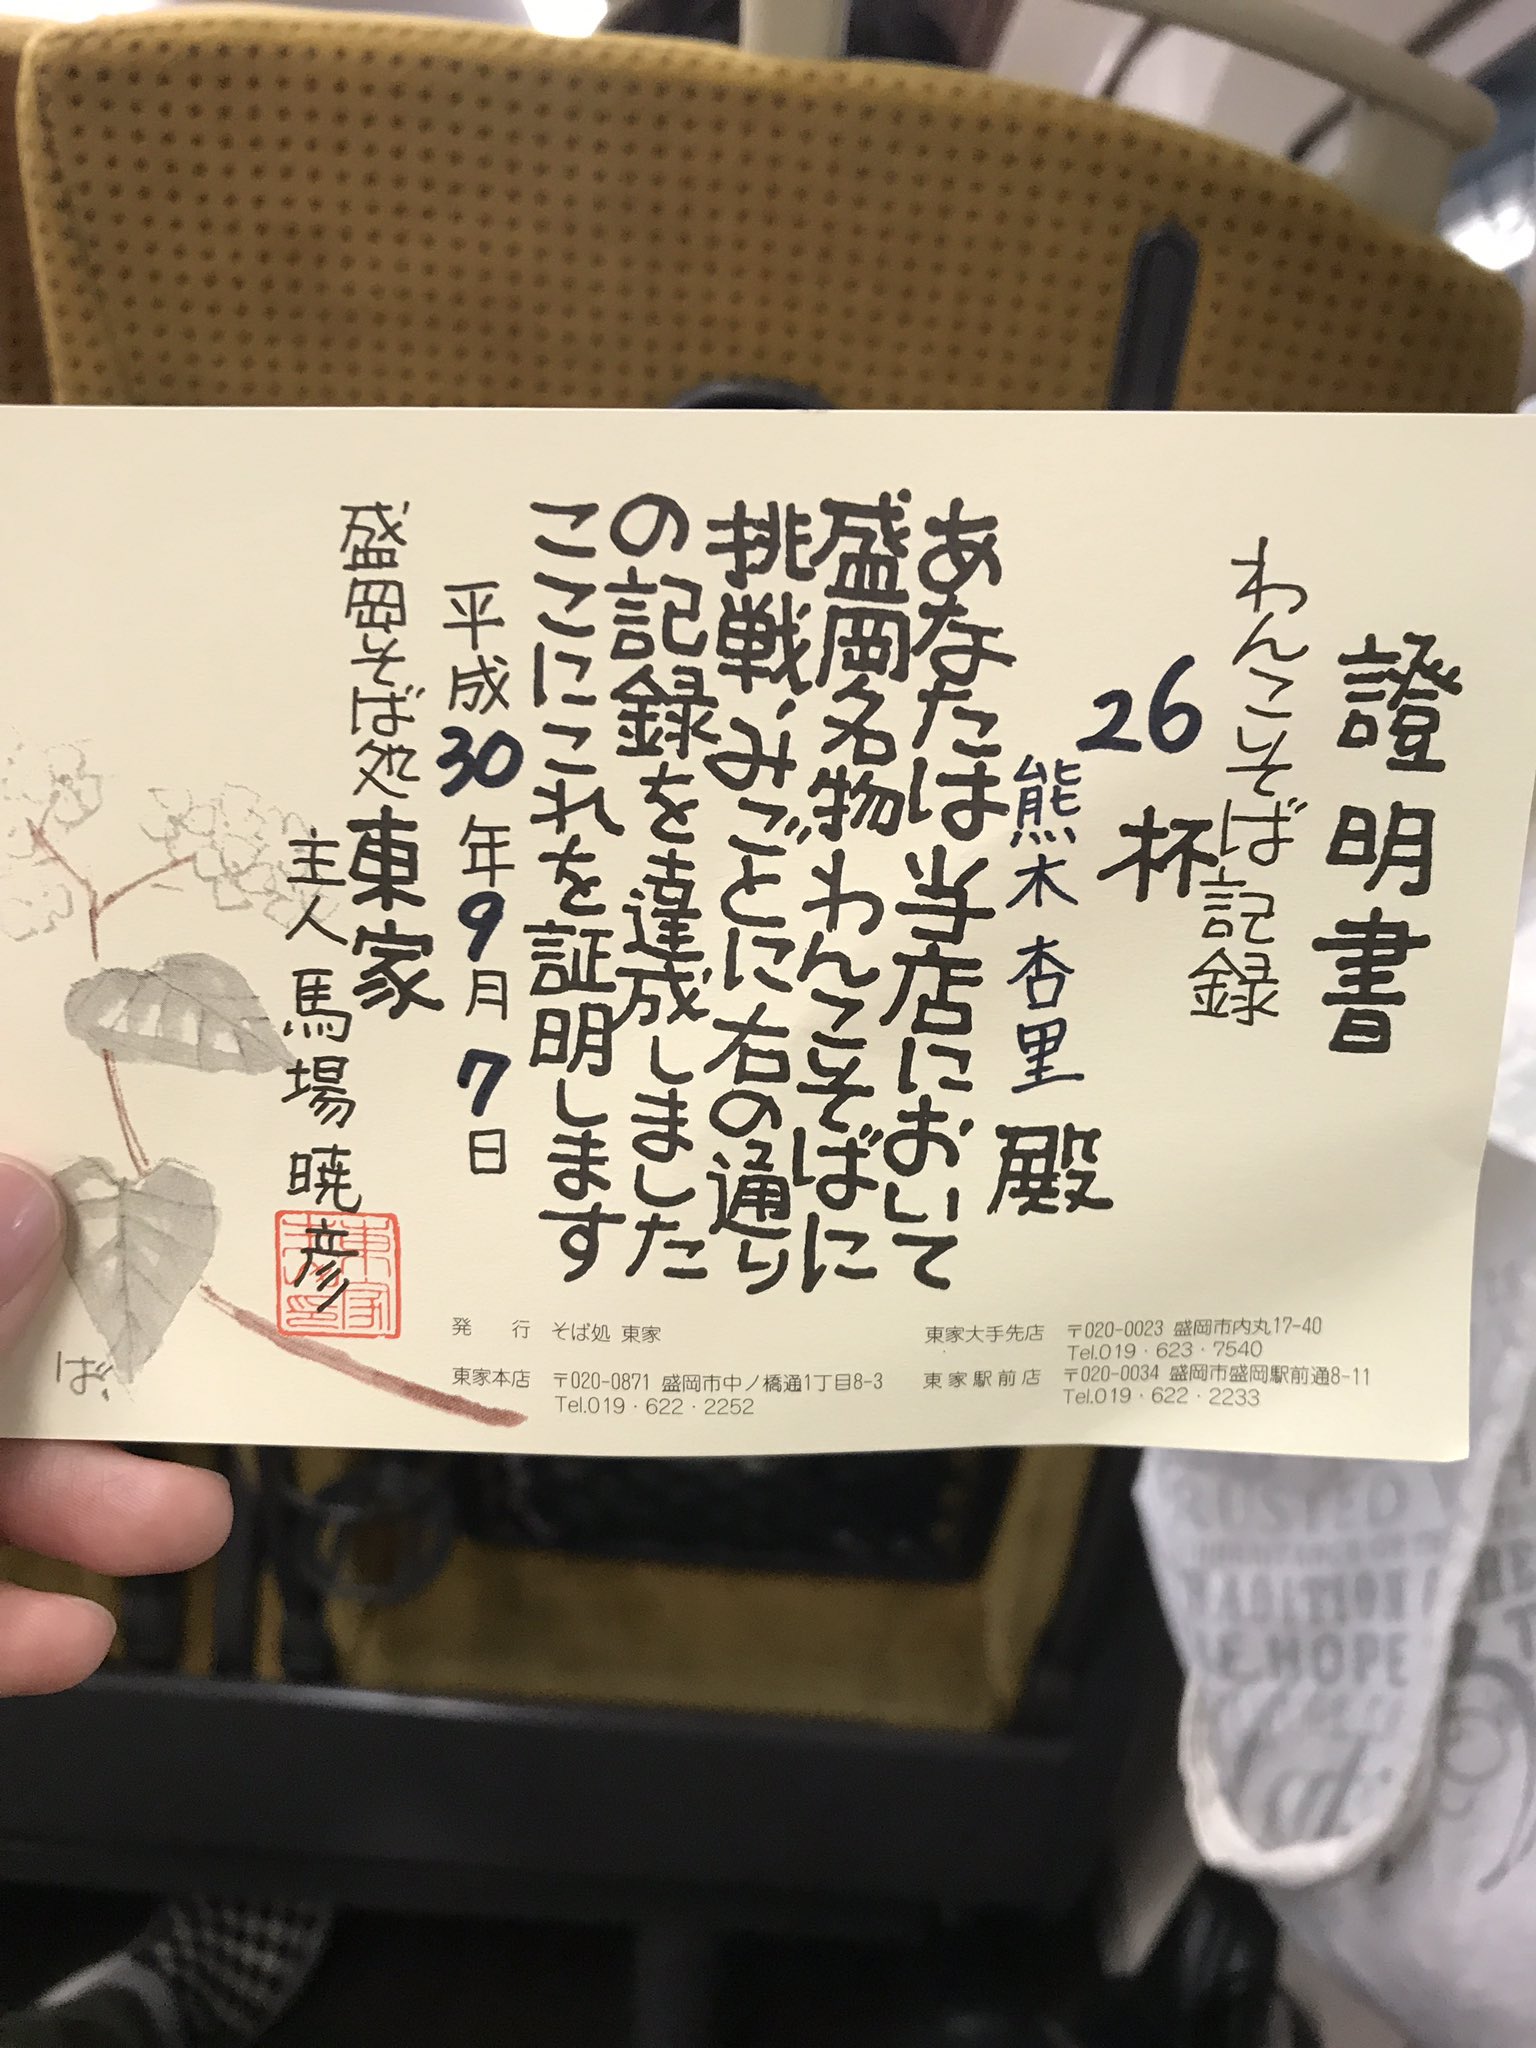 證明書
わんこそば記録
26杯
熊木杏里殿
あなたは当店において
盛岡名物わんこそばに
挑戦、みごとに右の通り
の記録を達成しました
ここにこれを証明します
平成30年9月7日
盛岡そば処 東家
主人 馬場暁彦
ば
発 行 そば処 東家
東家本店 〒020-0871 盛岡市中ノ橋通1丁目8-3
Tel.019・622・2252
東家大手先店 〒020-0023 盛岡市内丸17-40
Tel.019・623・7540
東家駅前店 〒020-0034 盛岡市盛岡駅前通8-11
Tel.019・622・2233
TRADITION
HOPE